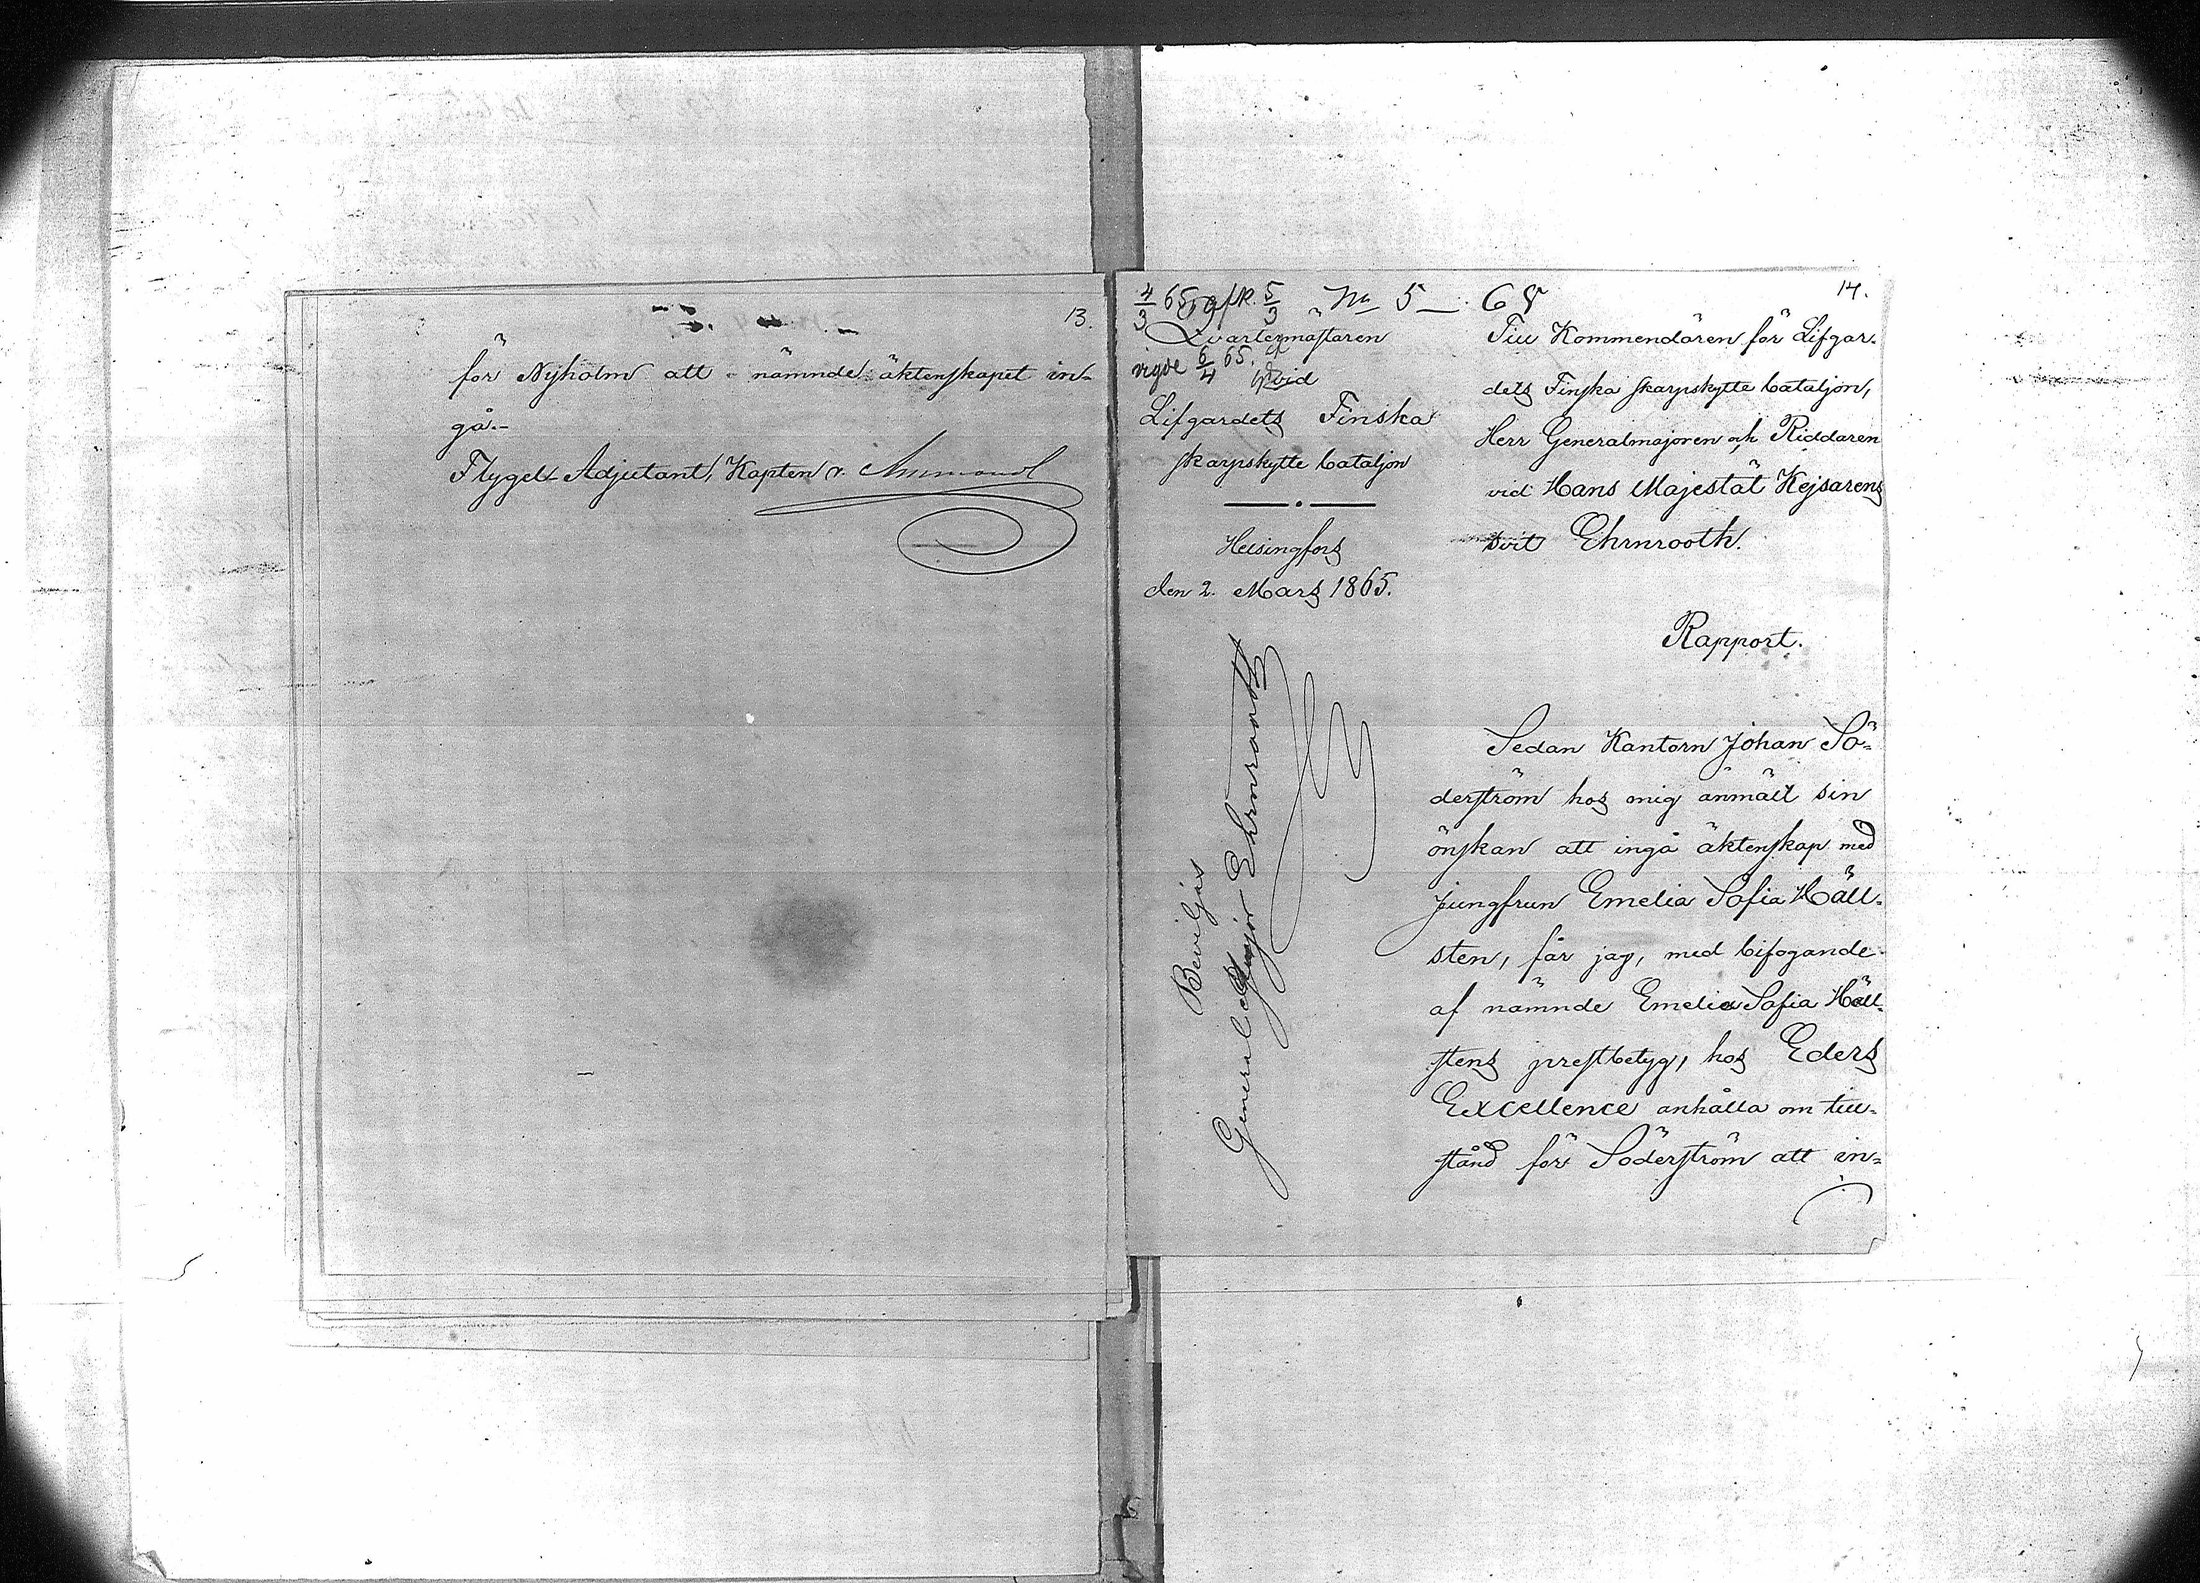 13.
för Nyholm att nämnde äktenskapet in-
gå.-
Flygel-Adjutant, Kapten v. Ammondt
14.
4/3 65 5/3 No 5 68
Qvartermästaren
vigde 6/4 65.
vid
Lifgardets Finska
skarpskytte bataljon
Helsingfors
den 2. Mars 1865.
Till Kommendören för Lifgar-
dets Finska skarpskytte bataljon,
Herr Generalmajoren och Riddaren
vid Hans Majestät Kejsarens
svit Ehrnrooth.
Rapport.
Sedan Kantorn Johan Sö-
derström hos mig anmält sin
önskan att ingå äktenskap med
jungfrun Emelia Sofia Häll-
sten, får jag, med bifogande
af nämnde Emelia Sofia Häll-
stens prestbetyg, hos Eders
Excellence anhålla om till-
stånd för Söderström att in-
Beviljas
General Major Ehrnrooth